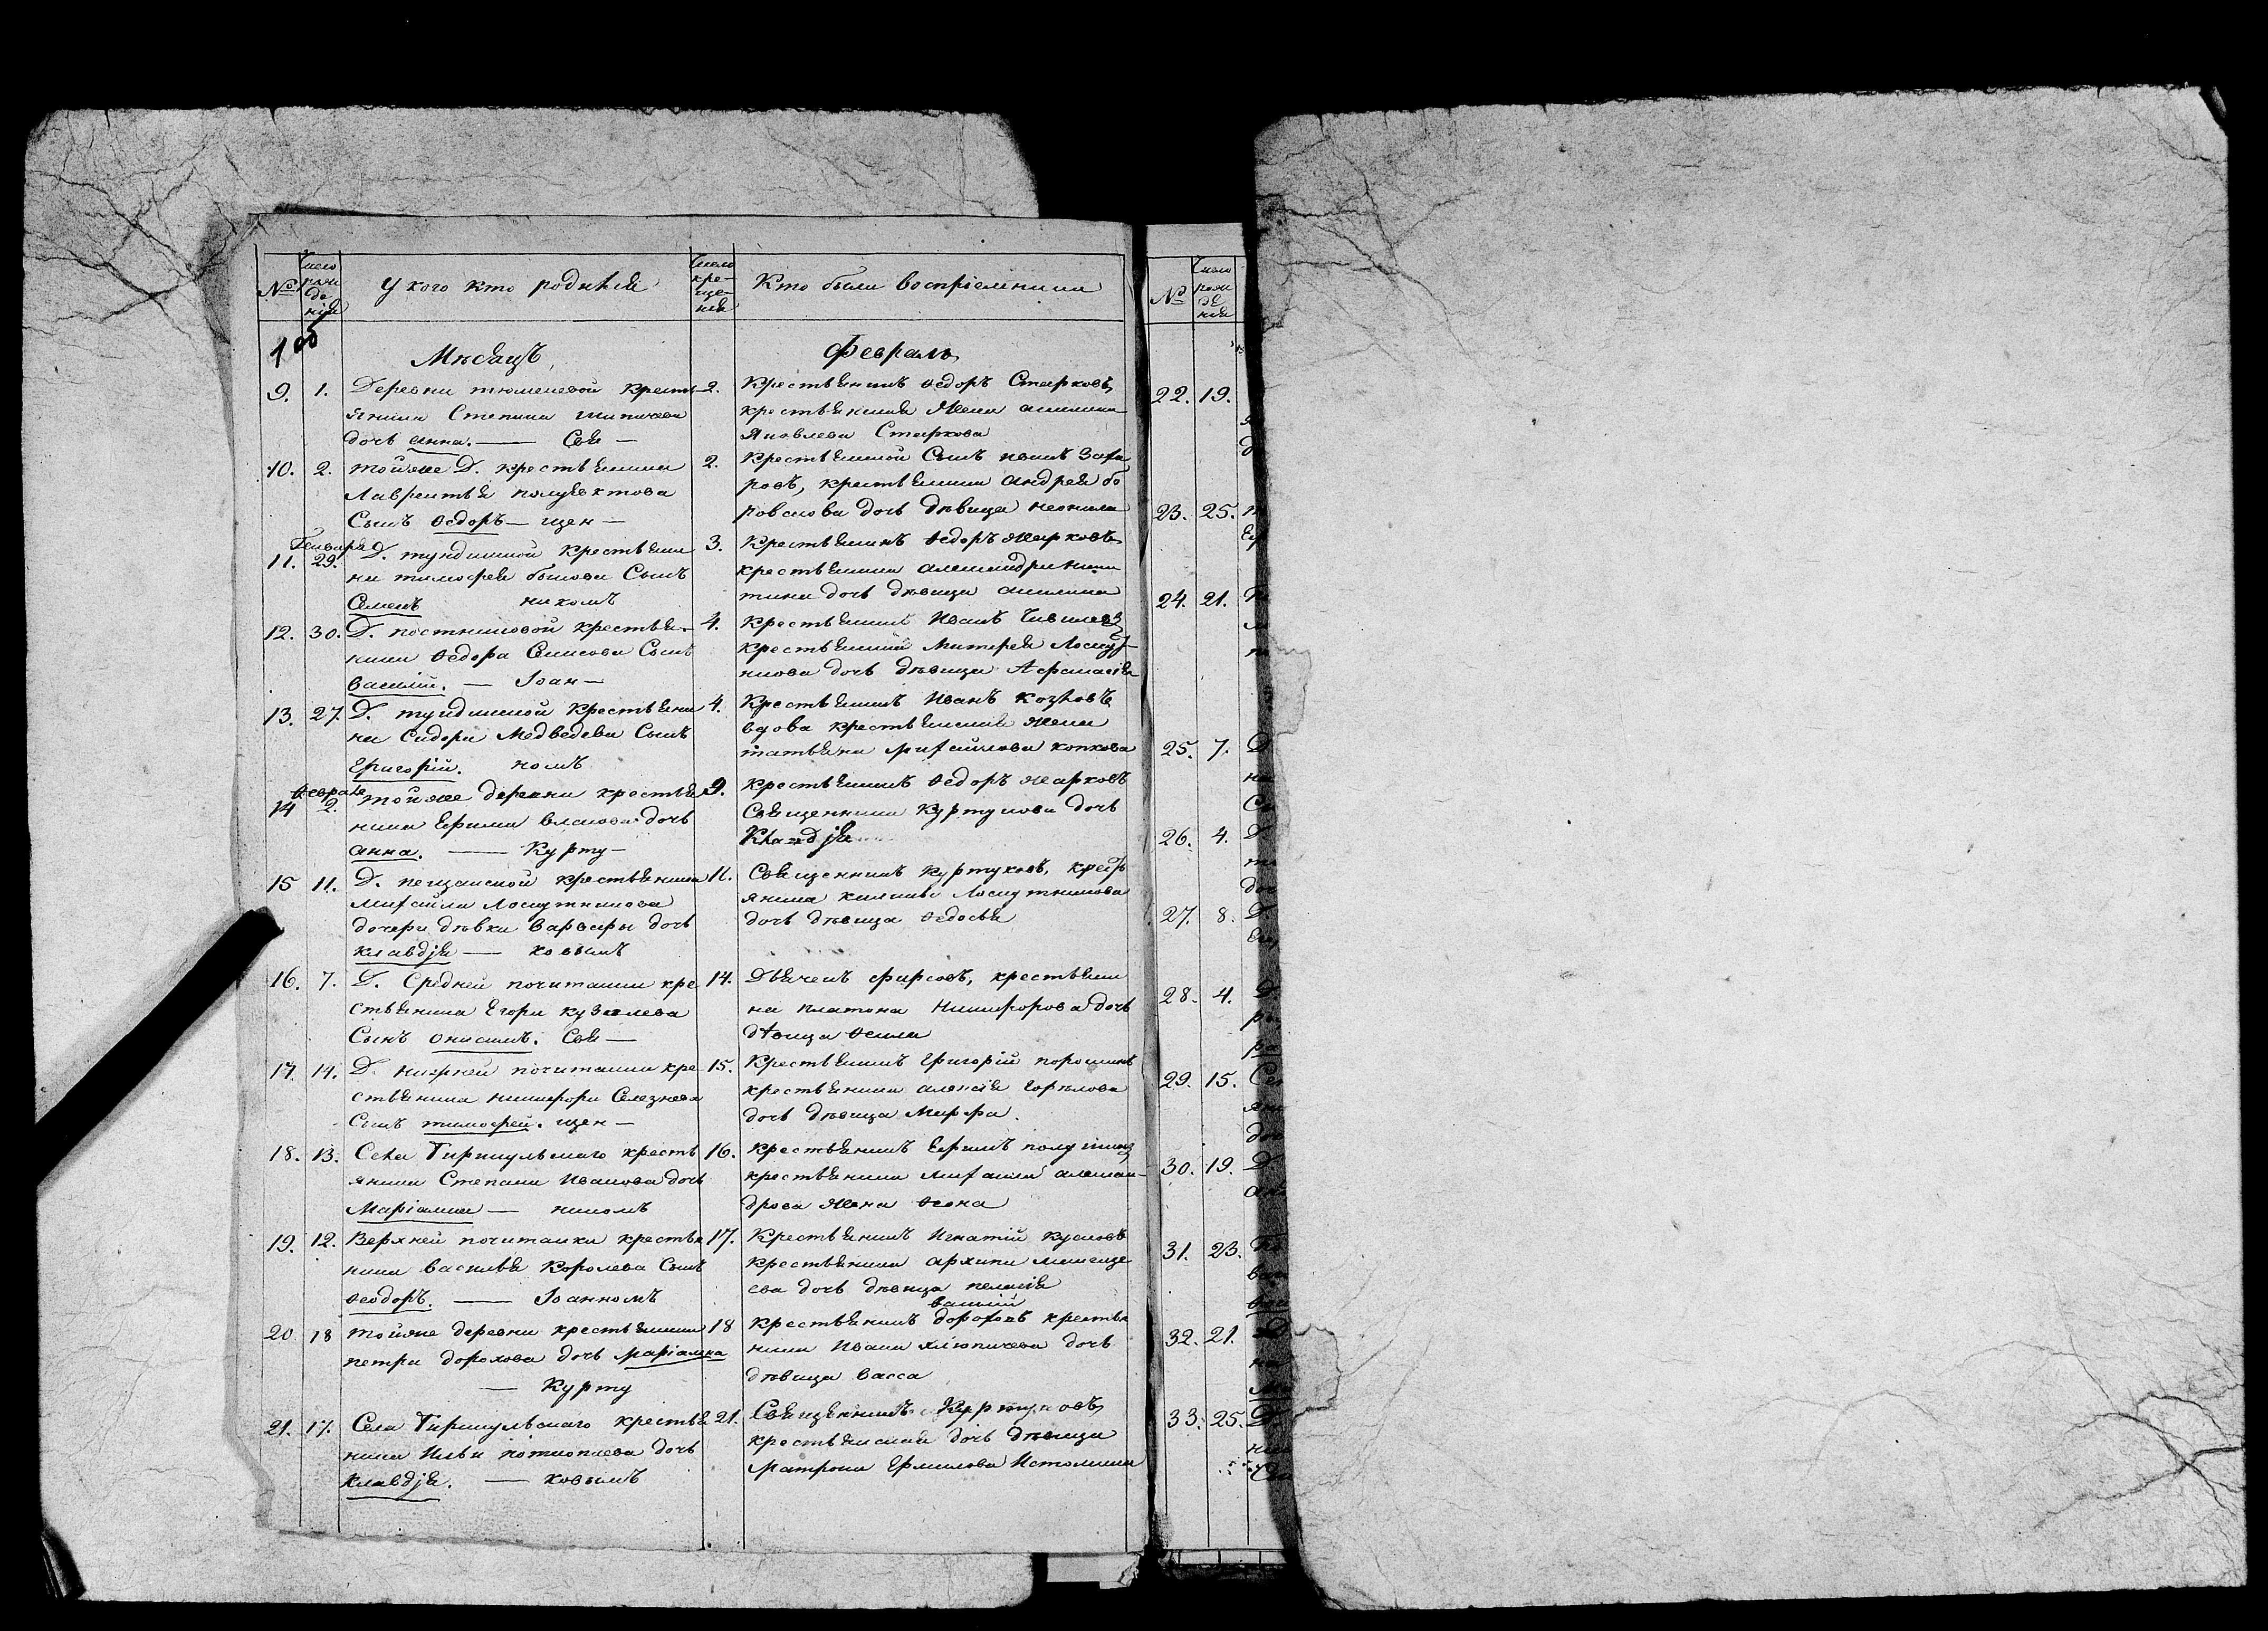 №
Число рож де нія
У кого кто родился
Число кре- ще- нія
Кто были воспріемники
№
Число рож де нія
Мѣсяцъ,
Февраль
9. 1. Деревни тюменевой кресть-
янина Степана
дочь Анна. — Свя —
2. Крестьянинъ Ѳедоръ Старковъ,
крестьянина жена
Яковлева Старкова
10. 2. тойже Д. крестьянина
Лаврентья полуектова
Сынъ Ѳедоръ — щен —
2. Крестьянской Сынъ иванъ Заха
ровъ, крестьянина Андрея бо
ровскова дочь дѣвица неонила
Генваря
11. 29. Д. тундинской крестьяни
на тимофея быкова Сынъ
Семенъ никомъ
3. Крестьянинъ Ѳедоръ Жарковъ
крестьянина Александра Ники
тина дочь дѣвица акилина
12. 30. Д. постниковой крестья-
нина Ѳедора Сынъ
Василій. — Іоан —
4. Крестьянинъ Иванъ
крестьянина Матфея Лоскут-
никова дочь дѣвица Афанасія
13. 27. Д. тундинской Крестьяни
на Сидора Медведева Сынъ
Григорій. номъ
4. Крестьянинъ Иванъ Козловъ
вдова крестьянская жена
татьяна михайлова копкова
Февраля
14 2. тойже деревни крестья
нина Ефима власова дочь
Анна. — Курту —
9. крестьянинъ Ѳедоръ жарковъ
Священника Куртукова дочь
Клавдія
15 11. Д. песчанской крестьянина
Михаила Лоскутникова
дочери дѣвки Варвары дочь
клавдія — ковымъ
11. Священникъ Куртуковъ, крест
янина Лоскутникова
дочь дѣвица Ѳедосья
16. 7. Д. Средней почитанки кре
стьянина Егора кузелева
Сынъ Онисимъ. Свя —
14. Дьячекъ фирсовъ, крестьяни
на платона Никифорова дочь
дѣвица Ѳекла
17. 14. Д. нижней почитанки кре
стьянина никифора Селезнева
Сынъ тимофей. щен —
15. Крестьянинъ Григорій порошинъ
крестьянина алексія Горѣлова
дочь дѣвица Марфа.
18. 13. Села Тиринульскаго кресть
янина Степана Иванова дочь
Маріамна — никомъ
16. крестьянинъ Ефимъ
крестьянина михаила алексан-
дрова жена Ѳеона
19. 12. Верхней почитанки крестья
нина василья Королева Сынъ
Ѳеодоръ. — Іоанномъ
17. Крестьянинъ Игнатій Кусковъ
крестьянина архипа
ева дочь дѣвица пелагія
василій
20 18 тойже деревни крестьянина
петра дорохова дочь Маріамна
— Курту
18 крестьянинъ дороховъ крестья
нина ивана дочь
дѣвица васса
21. 17. Села Тиринульскаго крестья
нина Ильи дочь
клавдія. — ковымъ
21. Священникъ Куртуковъ,
крестьянская дочь дѣвица
Матрона Ермилова Истомина
22. 19.
23. 25.
24. 21.
25. 7. Д
26. 4. Д.
27. 8. Д.
28. 4. Д.
29. 15. Се
30. 19. Д
31. 23.
32. 21.
33. 25. Д.